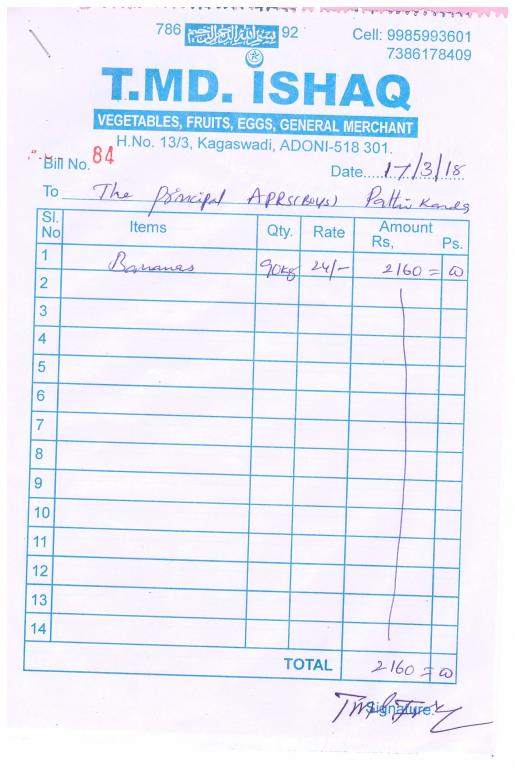 786 بسم الله الرحمن الرحيم 92
Cell: 9985993601
7386178409
T.MD. ISHAQ
VEGETABLES, FRUITS, EGGS, GENERAL MERCHANT
H.No. 13/3, Kagaswadi, ADONI-518 301.
Bill No. 84
Date....17/3/18
To The principal APRS(BOYS) Pattikonda
Sl. No Items Qty. Rate Amount Rs, Ps.
1 Bananas 90kg 24/- 2160 = 00
2
3
4
5
6
7
8
9
10
11
12
13
14
TOTAL 2160 = 00
Signature.